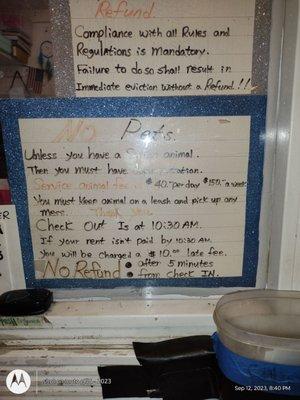 Refund
Compliance with all Rules and
Regulations is Mandatory.
Failure to do so shall result in
Immediate eviction without a Refund!!
No Pets.
Unless you have a animal.
Then you must have
Service animal fee $40.00 per day $150.00 a week
You must keep animal on a leash and pick up any
mess. Thank You
Check Out Is at 10:30 AM.
If your rent isn't paid by 10:30 AM.
you will be charged a $10.00 late fee.
No Refund • after 5 minutes
• from check IN.
ER
Sep 12, 2023, 8:40 PM